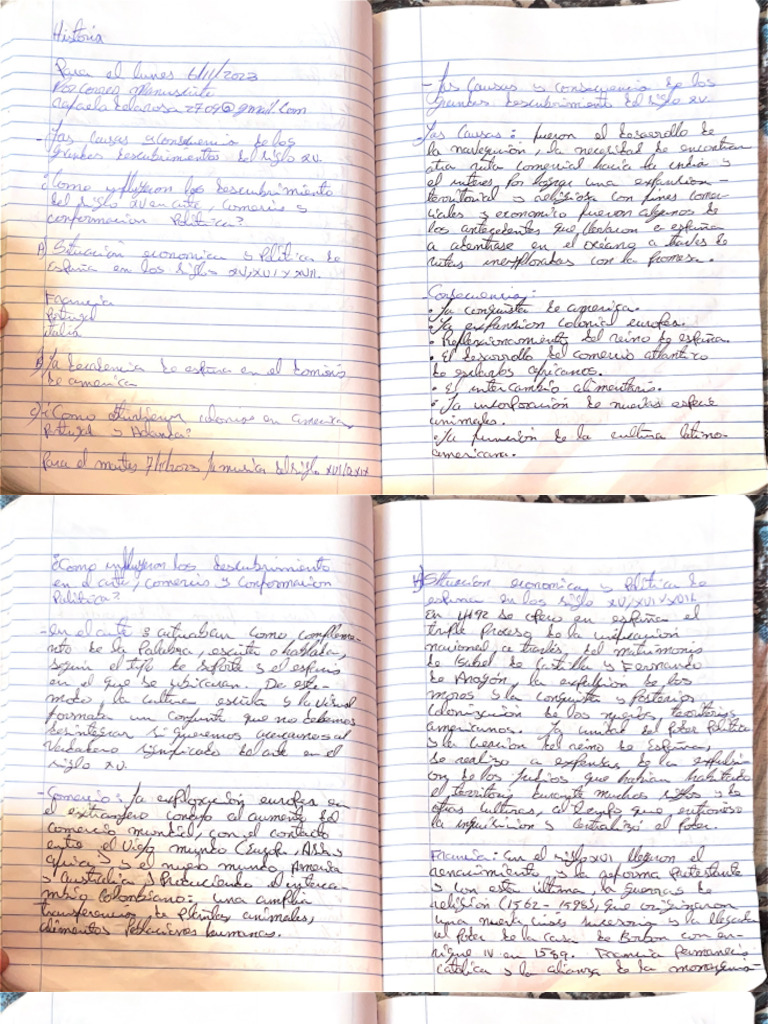 Historia
Para el lunes 6/11/2023
Por Correo Manuscrito
-Las Causas y consecuencia de los
grandes descubrimientos del siglo XV.
¿Como influyeron los descubrimiento
del siglo XV en arte, comercio y
conformacion Politica?
A) Situación economica y Politica de
españa en los siglos XV, XVI y XVII.
Francia
Portugal
italia
B) La decadencia de españa en el dominio
de america
c) ¿Como obtubieron colonias en america
Portugal y Holanda?
Para el martes 7/11/2023 la musica del siglo
- Las Causas y consecuencia de los
grandes descubrimiento del siglo XV.
-Las Causas: fueron el desarrollo de
la navegación, la necesidad de encontrar
otra ruta comercial hacia la india y
el interes por lograr una expansion
territorial y religiosa con fines comer-
ciales y economico fueron algunos de
los antecedentes que llevaron a españa
a adentrase en el océano a través de
rutas inexploradas con la promesa.
-Consecuencias:
• La conquista de america.
• La expansion colonial europea.
• del reino de españa.
• El desarrollo del comercio atlantico
de esclavos africanos.
• El intercambio alimentario.
• La incorporación de nuevas especie
animales.
• La de la cultura latino-
americana.
¿Como influyeron los descubrimiento
en el arte, comercio y conformacion
Politica?
-En el arte: actuaban como compleme-
nto de la Palabra, escrita o hablada,
según el tipo de soporte y el espacio
en el que se ubicaran. De este
modo, la cultura escrita y la visual
forman un conjunto que no debemos
desintegrar si queremos acercarnos al
verdadero significado del arte en el
siglo XV.
-Comercio: La exploración europea en
el extranjero condujo al aumento del
comercio mundial, con el contacto
entre el viejo mundo (Europa, Asia y
africa) y el nuevo mundo America
y Australia y Produciendo el interca-
mbio Colombiano: una amplia
transferencia de Plantas animales,
alimentos Poblaciones humanas.
A) Situacion economica y Politica de
españa en los siglo XV, XVI y XVII.
En 1492 se opero en españa el
triple Proceso de la unificacion
nacional, a través del matrimonio
de Isabel de Castilla y Fernando
de Aragón, la expulsión de los
moros y la conquista y Posterior
colonización de los nuevos territorios
americanos. La unidad del Poder Politico
y la creacion del reino de España,
se realizo a expensas de la expulsi-
on de los Judios que habian habitado
el territorio durante muchos siglos y de
otras culturas, al tiempo que entronizo
la inquisicion y centralizó el Poder.
Francia: En el siglo XVI llegaron el
renacimiento y la reforma Protestante
y con esta última, la guerras de
religión (1562-1598), que originaron
una nueva crisis sucesoria y la llegada
al Poder de la casa de Borbon con en-
rique IV en 1589. Francia Permanecio
catolica y la alianza de la monarquia